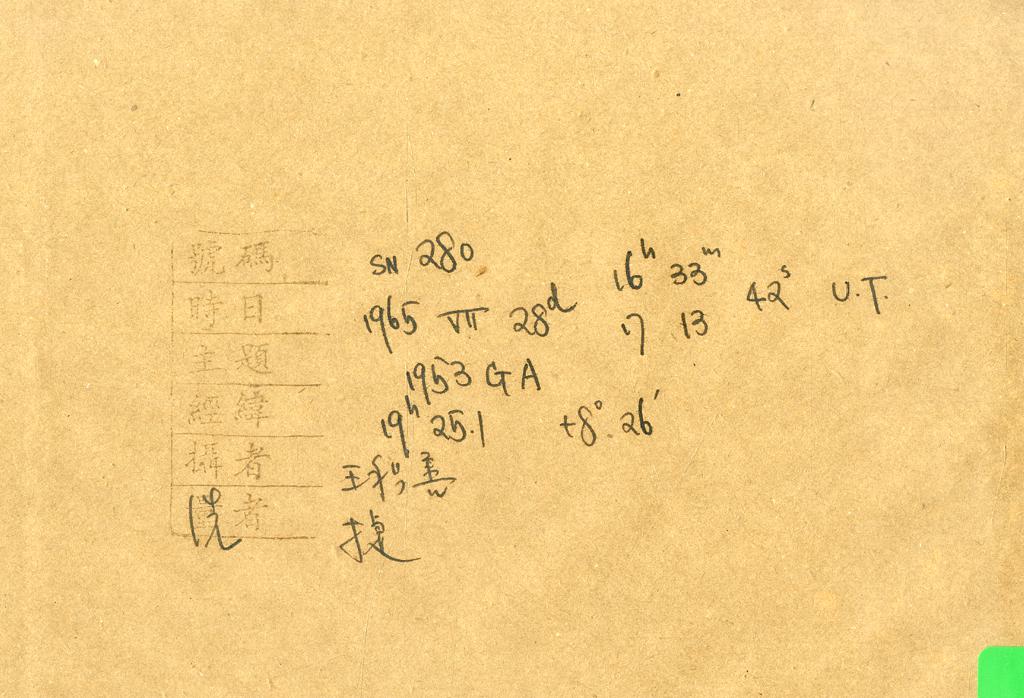 號碼 SN 280
時日 1965 VII 28d 16h 33m 42s U.T.
17 13
主題 1953 GA
經緯 19h 25.1 +8°.26'
攝者 王
洗者